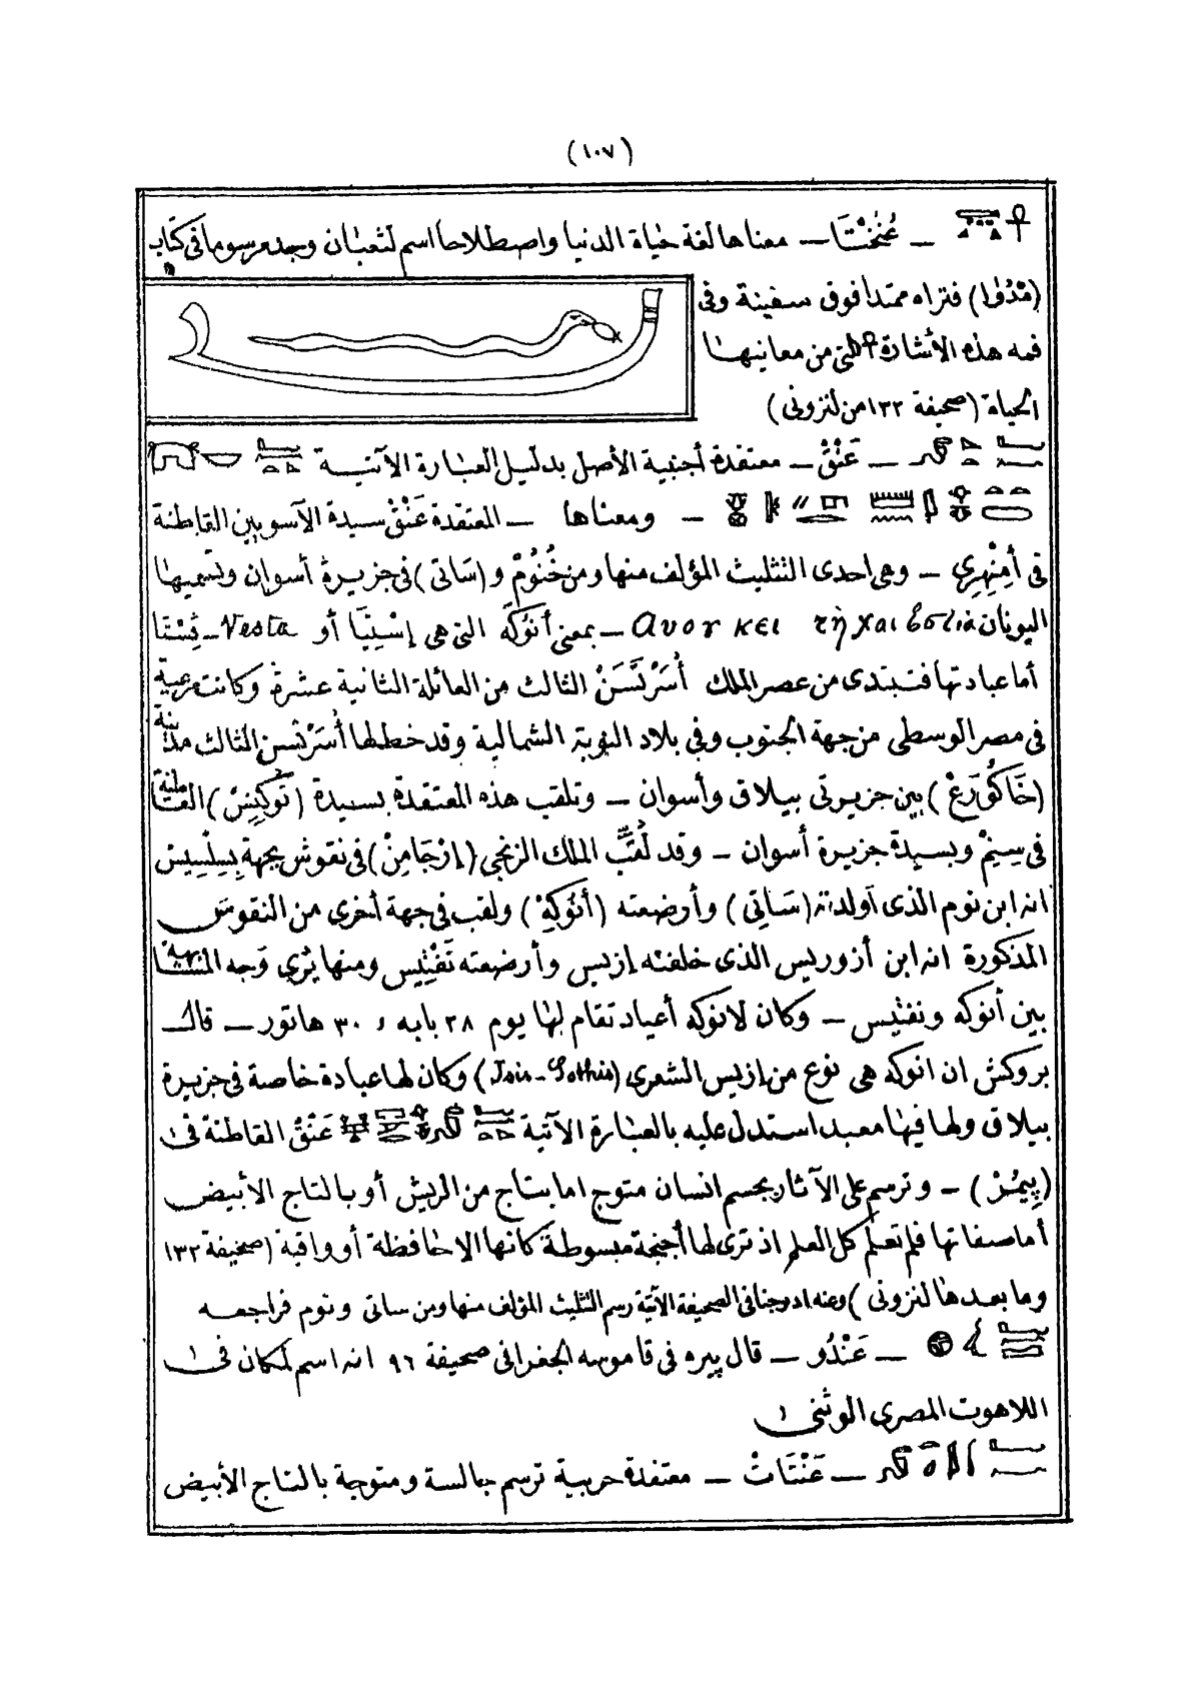 (١٠٧)
— عُنْخْتَا — معناها لغة حياة الدنيا واصطلاحا اسم لثعبان وجد مرسوما فى كتاب
(مْدُوا) فتراه ممتدا فوق سفينة وفى
فمه هذه الأشارة ☥ التى من معانيها
الحياة (صحيفة ١٣٢ من لنزونى)
— عَنْقْ — معتقدة أجنبية الأصل بدليل العبارة الآتية
— ومعناها — المعتقدة عَنْقْ سيدة الآسويين القاطنة
فى أمِنْهِرِي — وهى احدى التثليث المؤلف منها ومن خْنُومْ و(سَاتى) فى جزيرة أسوان وتسميها
اليونان Ανουκει τῇ και Εστία — بمعنى أنُوكَه التى هى إسْتِيَا أو Vesta — فِسْتَا
أما عبادتها فتبتدى من عصر الملك أُسَرْتَسَنْ الثالث من العائلة الثانية عشرة وكانت مرعية
فى مصر الوسطى من جهة الجنوب وفى بلاد النوبة الشمالية وقد خطط لها أُسَرْتَسن الثالث مدينة
(خَاكُورَعْ) بين جزيرتى بيلاق وأسوان — وتلقب هذه المعتقدة بسيدة (تُوكِنِسْ) القاطنة
فى سِيِمْ وبسيدة جزيرة أسوان — وقد لُقّب الملك الزنجى (إرْجَامِنْ) فى نقوش بجهة بِسِلْسِيس
انه ابن نوم الذى أولدته (سَاتِى) وأرضعته (أنُوكِهْ) ولقب فى جهة أخرى من النقوش
المذكورة انه ابن أزوريس الذى خلفته إزيس وأرضعته نَفْتِيس ومنها يُرى وجه المشابهة
بين أنوكه ونفتيس — وكان لانوكه أعياد تقام لها يوم ٢٨ بابه و ٣٠ هاتور — قال
بروكش ان انوكه هى نوع من إزيس الشعرى (Isis-Sothis) وكان لها عبادة خاصة فى جزيرة
بيلاق ولها فيها معبد استدل عليه بالعبارة الآتية عَنْقْ القاطنة فى
(پِيمُرْ) — وترسم على الآثار بجسم انسان متوج اما بتاج من الريش أو بالتاج الأبيض
أما صفاتها فلم تعلم كل العلم اذ ترى لها أجنحة مبسوطة كانها الاحافظة أو واقية (صحيفة ١٣٢
وما بعدها لنزونى) وعنه ادرجنا فى الصحيفة الآتية رسم التثليث المؤلف منها ومن ساتى ونوم فراجعه
— عَنْدُو — قال پيره فى قاموسه الجغرافى صحيفة ٩٦ انه اسم لمكان فى
اللاهوت المصرى الوثنى
— عَنْتَاتْ — معتقدة حربية ترسم جالسة ومتوجة بالتاج الأبيض